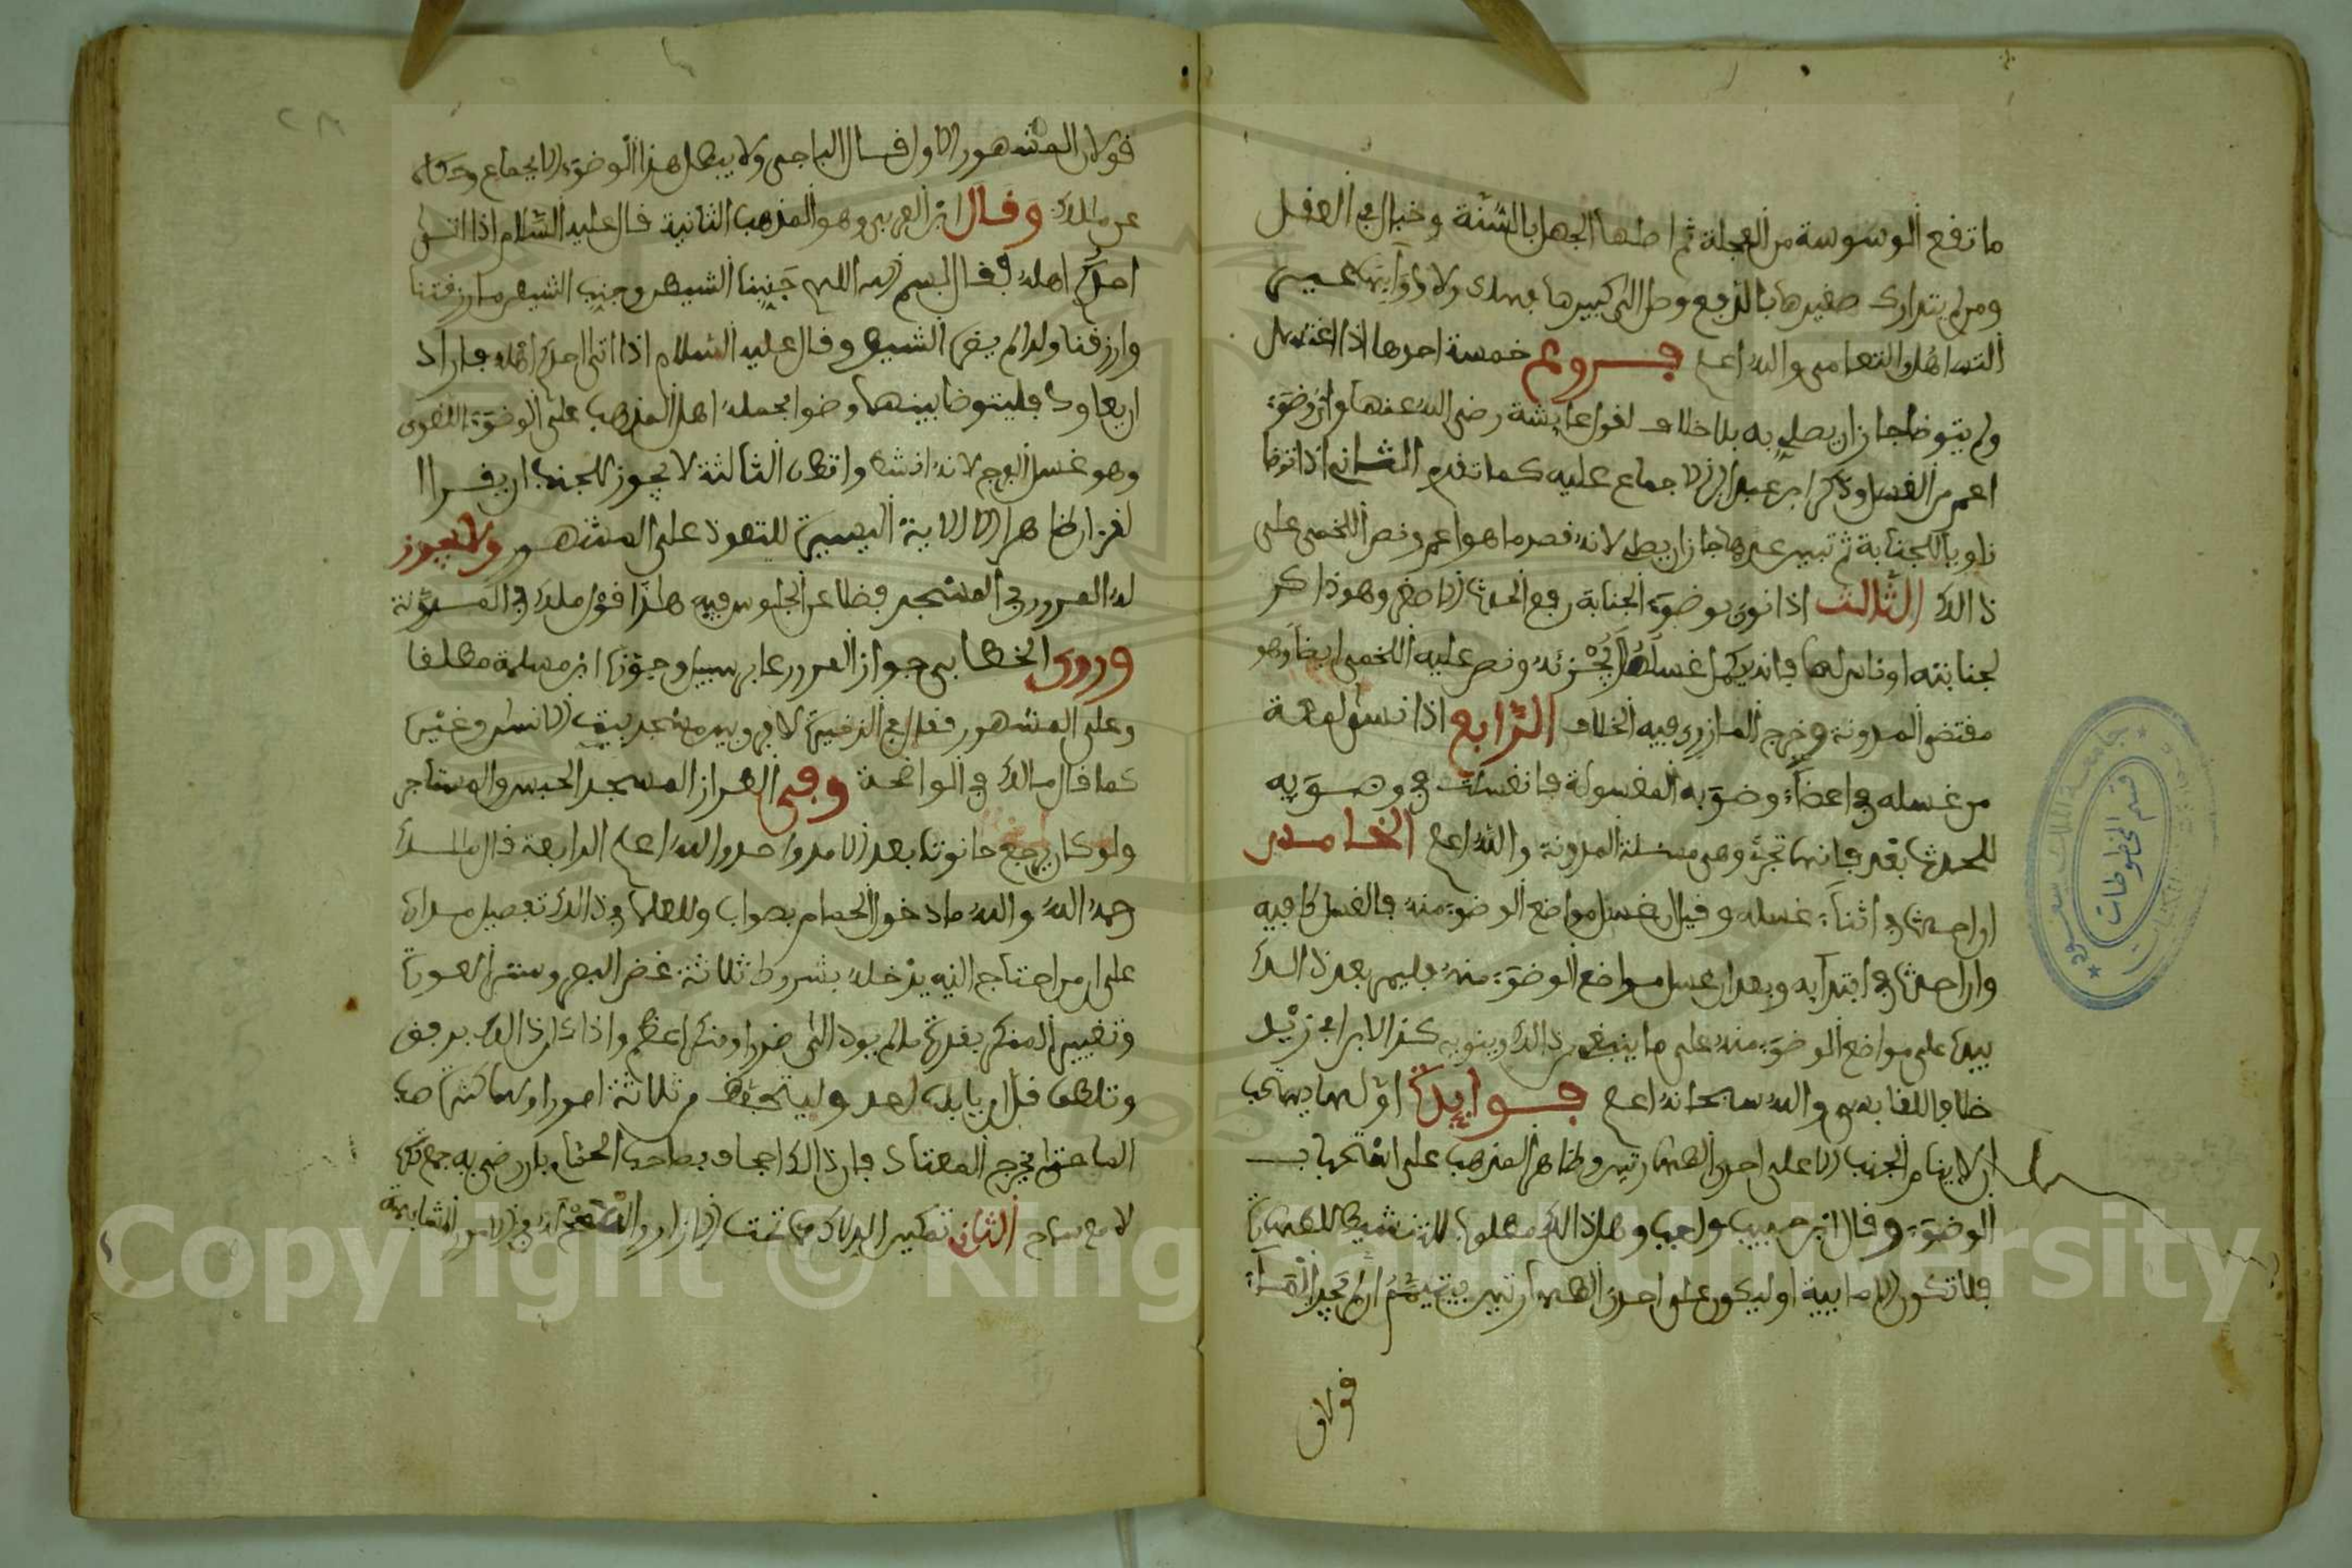 ما تقع الوسوسة من العجلة ثم اصلها الجهل بالسّنّة و خبال في العقل
ومن لم يتدارك صغيرها بالدفع وصل الى كبيرها ولا دواء
التساهل والتعامى والله اعلم فروع خمسة احدها اذا اغتسل
ولم يتوضا جاز ان يصلي به بلا خلاف لقول عايشة رضى الله عنها واي وضوء
اعم من الغسل وذكر ابن عبد البر الاجماع عليه كما تقدم الثاني اذا توضا
ناويا للجنابة ثم تبين عدمها جاز ان يصلي لانه قصد ما هو اعم ونص اللخمى على
ذالك الثالث اذا نوى بوضوء الجنابة رفع الحدث الاصغر وهو ذاكر
لجنابته او ناس لها فانه يكمل غسله ويجزئه ونص عليه اللخمى ايضا وهو
مقتضى المدونة وخرج المازرى فيه الخلاف الرابع اذا نسى لمعة
من غسله في اعضاء وضوءيه المغسولة فانغسلت في وضوءيه
للحدث بعد فانها تجزء وهى مسئلة المدونة والله اعلم الخامس
ان احدث في اثناء غسله وقبل ان يغسل مواضع الوضوء منه فالغسل كافيه
وان احدث في ابتدايه وبعد ان غسل مواضع الوضوء منه فليمر بعد ذالك
بيده على مواضع الوضوء منه على ما ينبغى من ذالك وينويه كذا لابن ابي زيد
خلافا للقابسى والله سبحانه اعلم فوايد اولها يستحب
ان لا ينام الجنب الا على احدى الطهارتين وظاهر المذهب على استحباب
الوضوء وقال ابن حبيب واجب وهل ذالك مطلوب للتنشيط للطهارة
فلا تكون الا مايية او ليكون على احدى الطهارتين فيتيمم ان لم يجد الماء
قولان
قولان المشهور الاول قال الباجى ولا يبطل هذا الوضوء الا بجماع وحكاه
عن مالك وقال ابن العربي وهو المذهب الثانية قال عليه السّلام اذا اتى
احدكم اهله فقال بسم الله اللهم جنبنا الشيطن وجنب الشيطن ما رزقتنا
وارزقنا ولدا لم يضره الشيطن وقال عليه السلام اذا اتى احدكم اهله فاراد
ان يعاود فليتوضا بينهما وضوءا بحمله اهل المذهب على الوضوء اللغوى
وهو غسل الفرج لانه انشط وانظف الثالثة لا يجوز للجنب ان يقرا
القرءان ظاهرا الا الاية اليسيرة للتعوذ على المشهور ولا يجوز
له المرور في المسجد فضلا عن الجلوس فيه هذا قول مالك في المدوّنة
وروى الخطابى جواز المرور عابر سبيل وجوزه ابن مسلمة مطلقا
وعلى المشهور فقال في الذخيرة لا فرق بين مسجد بيت الانسان وغيره
كما قال مالك في الواضحة وفى الطراز المسجد الحبس والمستاجر
ولو كان يرجع حانوتا بعد الامد واحد والله اعلم الرابعة قال مالك
رحمه الله والله ما دخول الحمام بصواب وللعلماء في ذالك تفصيل مداره
على ان من احتاج اليه يدخله بشروط ثلاثة غض البصر وستر العورة
وتغيير المنكر بقدرته ما لم يود الى ضرر او منكر اعظم واذا كان ذالك برفق
وتلطف قل ان يابى احد وليتحفظ من ثلاثة امور اولها كثرة صب
الماء حتى يخرج المعتاد فان ذالك اجحاف بصاحب الحمام
الثانى تمكين الدلاك مما تحت الازار